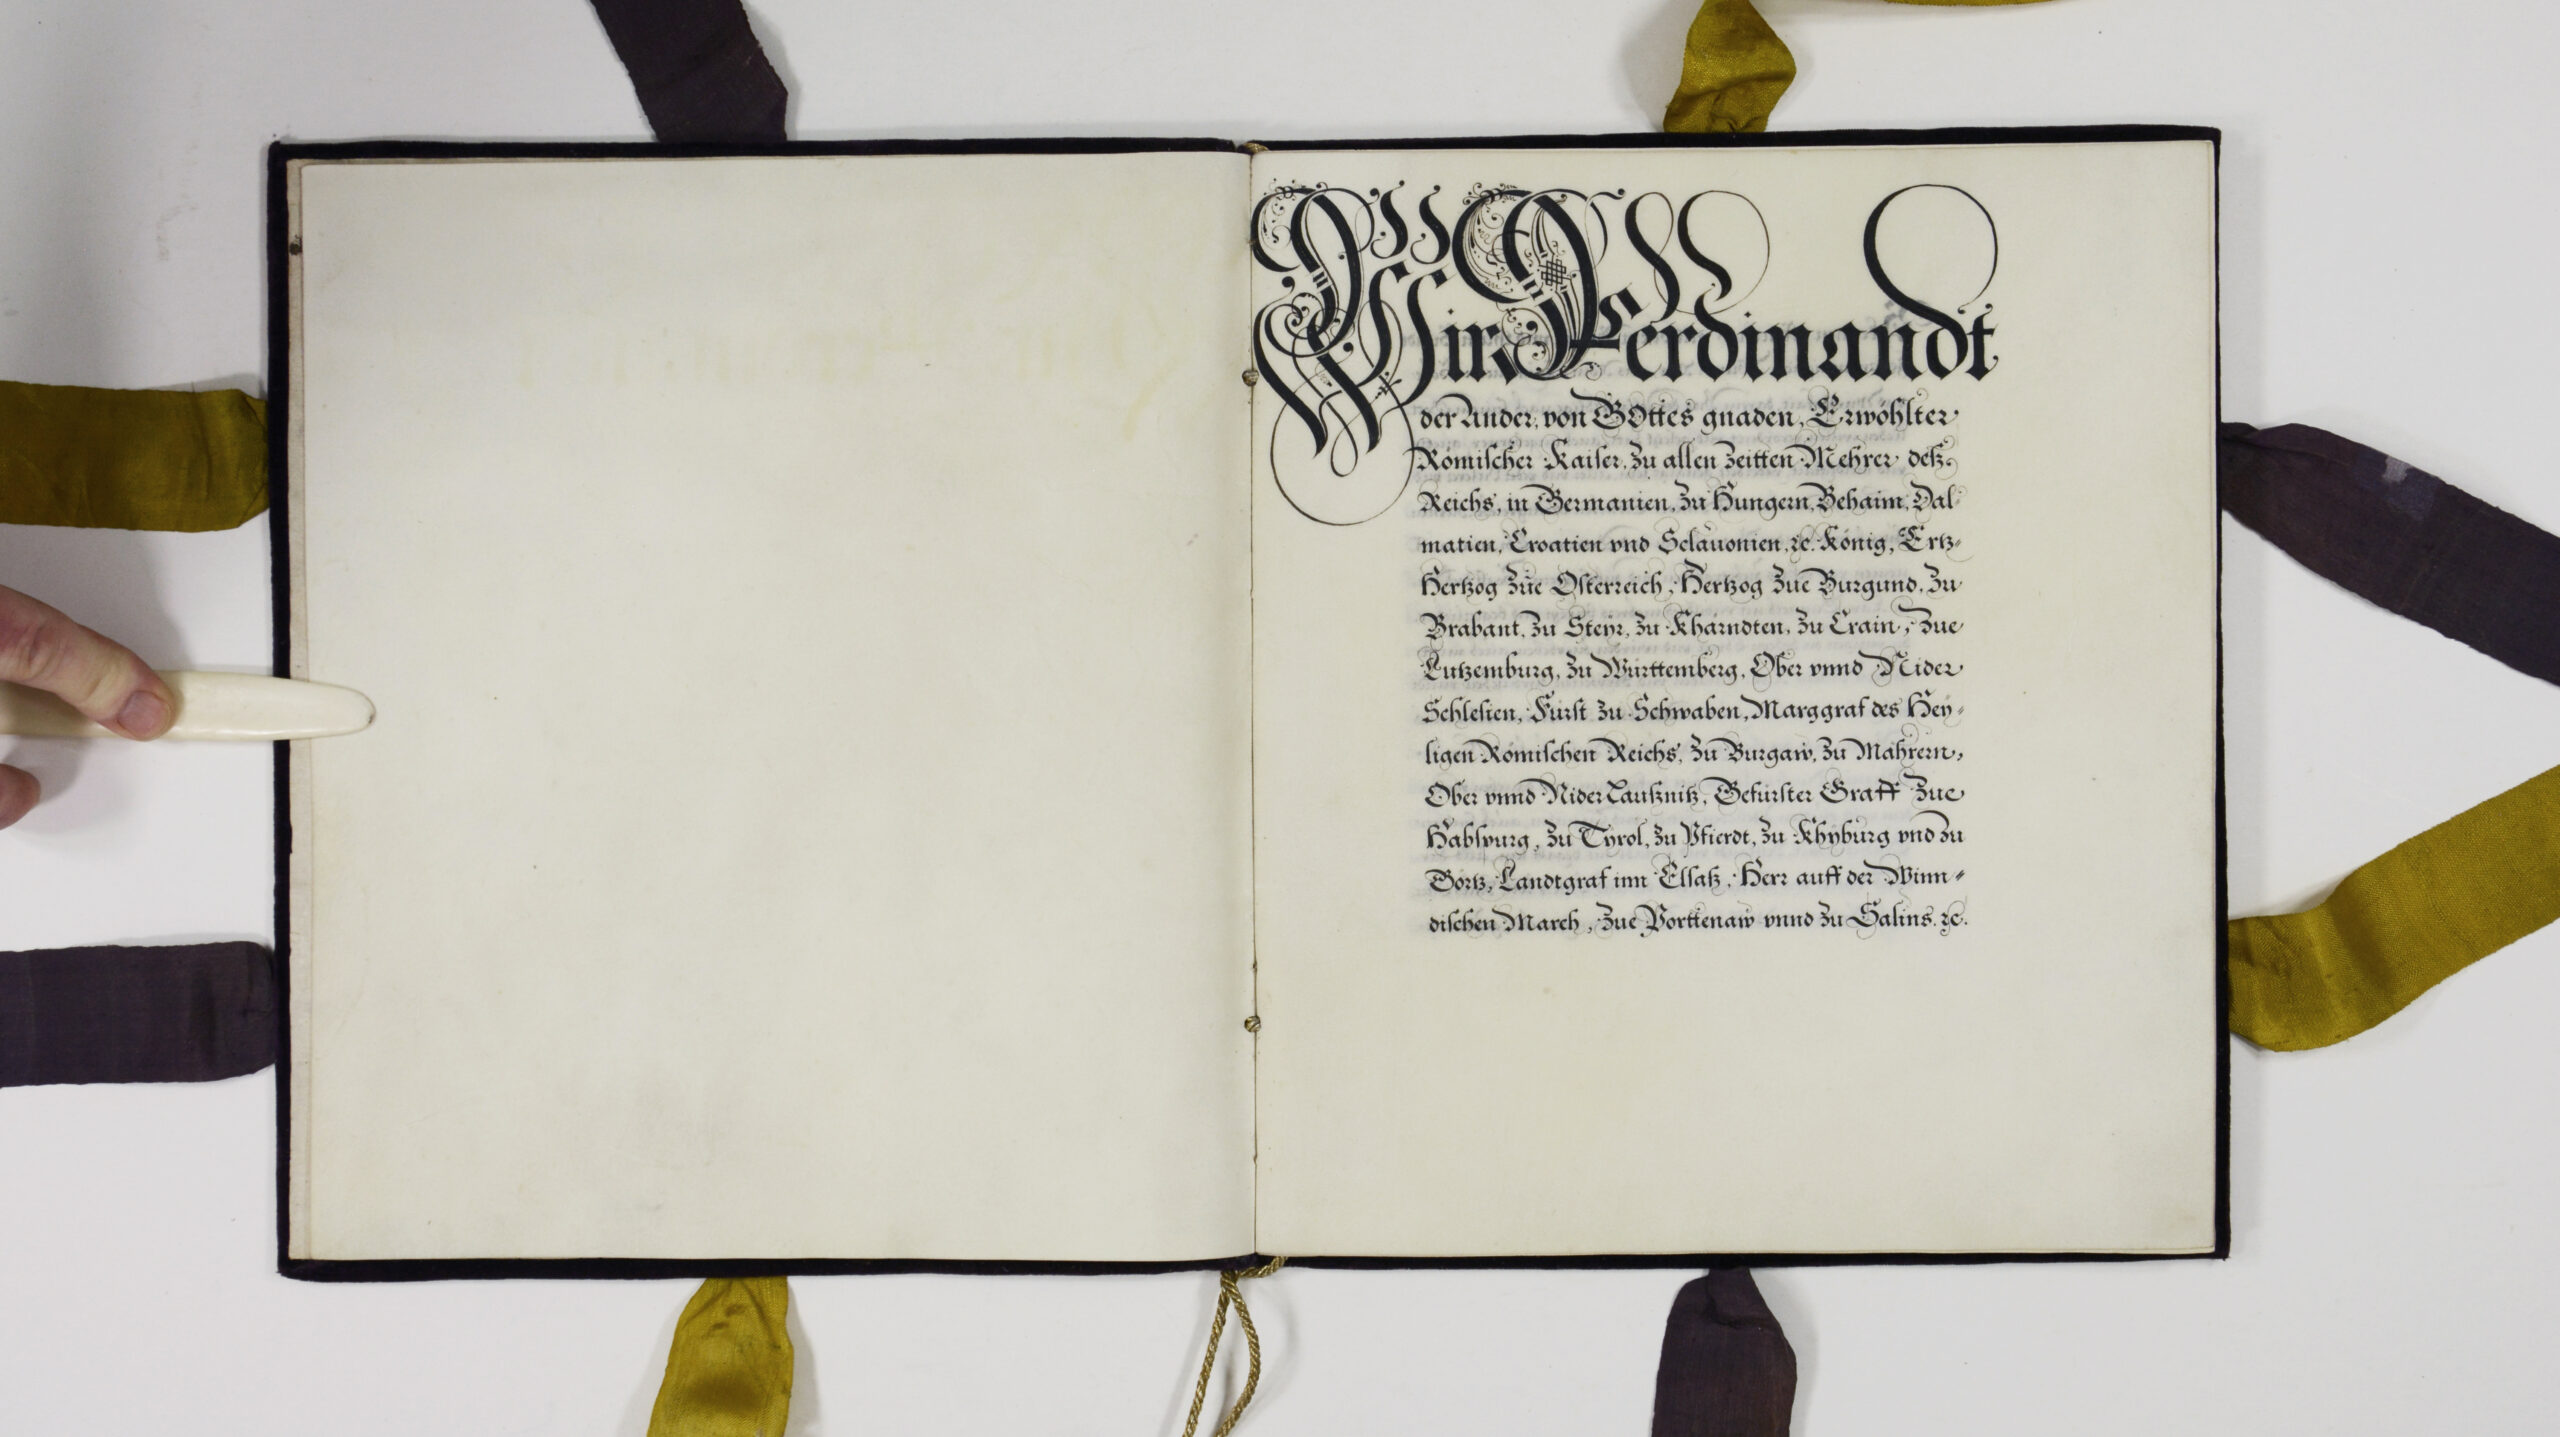 Wir Ferdinandt
der Ander, von GOttes gnaden, Erwöhlter
Römischer Kaiser, zu allen Zeitten Mehrer deß
Reichs, in Germanien, zu Hungern, Behaim, Dal-
matien, Croatien vnd Sclauonien, ꝛc. König, Ertz-
Hertzog züe Osterreich, Hertzog züe Burgund, zu
Brabant, zu Steyr, zu Khärndten, zu Crain, züe
Lützemburg, zu Württemberg, Ober vnnd Nider
Schlesien, Fürst zu Schwaben, Marggraf des Hey-
ligen Römischen Reichs, zu Burgaw, zu Mährern,
Ober vnnd Nider Laußnitz, Gefürster Graff züe
Habspurg, zu Tyrol, zu Pfierdt, zu Khyburg vnd zu
Görtz, Landtgraf inn Elsaß, Herr auff der Winn-
dischen March, züe Porttenaw vnnd zu Salins. ꝛc.